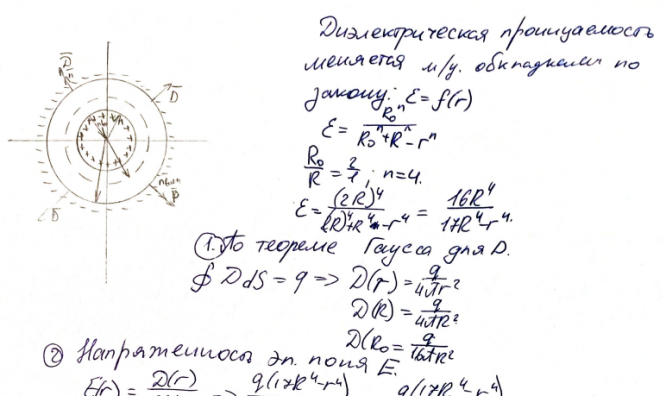 Диэлектрическая проницаемость
меняется м/у. обкладками по
закону: ε = f(r)
ε = R₀ⁿ / (R₀ⁿ + Rⁿ - rⁿ)
R₀/R = 2/1; n = 4.
ε = (2R)⁴ / ((2R)⁴ + R⁴ - r⁴) = 16R⁴ / (17R⁴ - r⁴).
① По теореме Гаусса для D.
∮ D dS = q => D(r) = q / 4πr²
D(R) = q / 4πR²
D(R₀ = q / 16πR²
② Напряженность эл. поля E.
E(r) = D(r) => q(17R⁴ - r⁴) q(17R⁴ - r⁴)
D̄
D̄
D̄